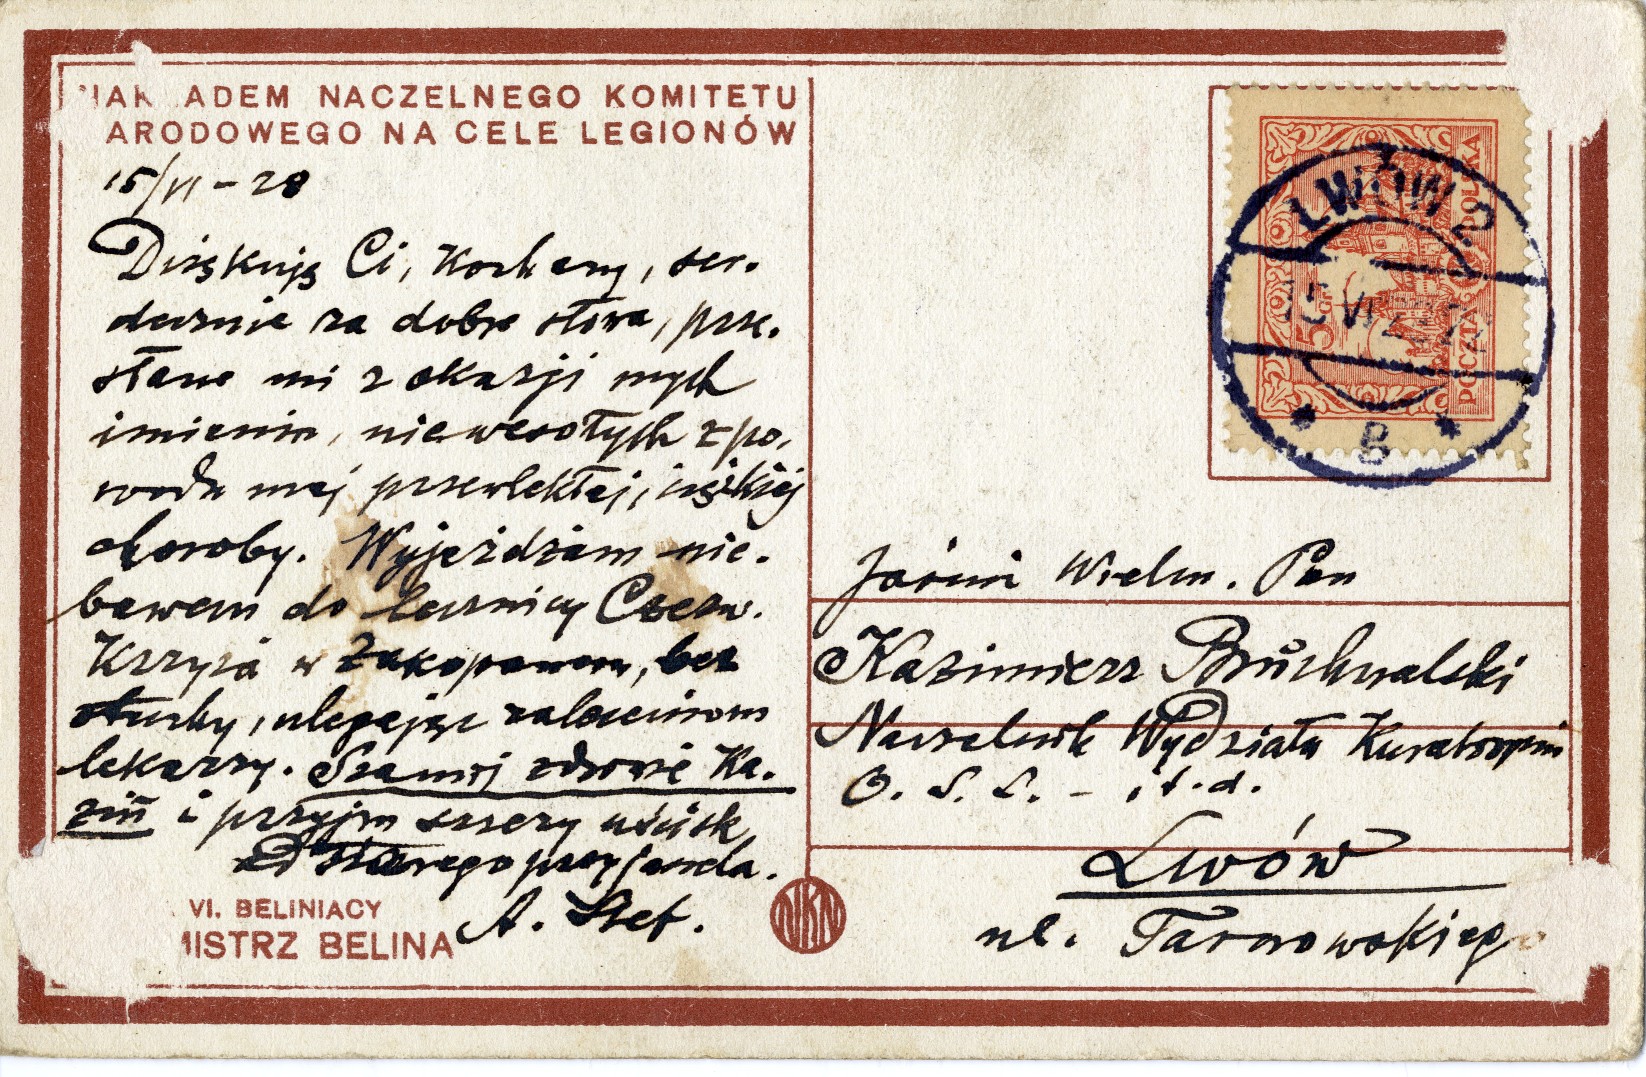 NAKŁADEM NACZELNEGO KOMITETU
NARODOWEGO NA CELE LEGIONÓW
15/VI – 28
Dziękuję Ci, Kochany, ser-
decznie za dobre słowa, prze-
słane mi z okazji mych
imienin, niewesołych z po-
wodu mej przewlekłej, ciężkiej
choroby. Wyjeżdżam nie-
bawem do lecznicy Czerw.
Krzyża w Zakopanem, bez
otuchy, ulegając zaleceniom
lekarzy. Szanuj zdrowie Ka-
ziu i przyjm szczery uścisk
od starego przyjaciela.
A. Stef.
VI. BELINIACY
MISTRZ BELINA
NKN
POCZTA POLSKA
5 GR
LWÓW 2
15 VI 28
B
Jaśnie Wielm. Pan
Kazimierz Bruchnalski
Naczelnik Wydziału Kuratorjum
O. S. L. – i t. d.
Lwów
ul. Tarnowskiego